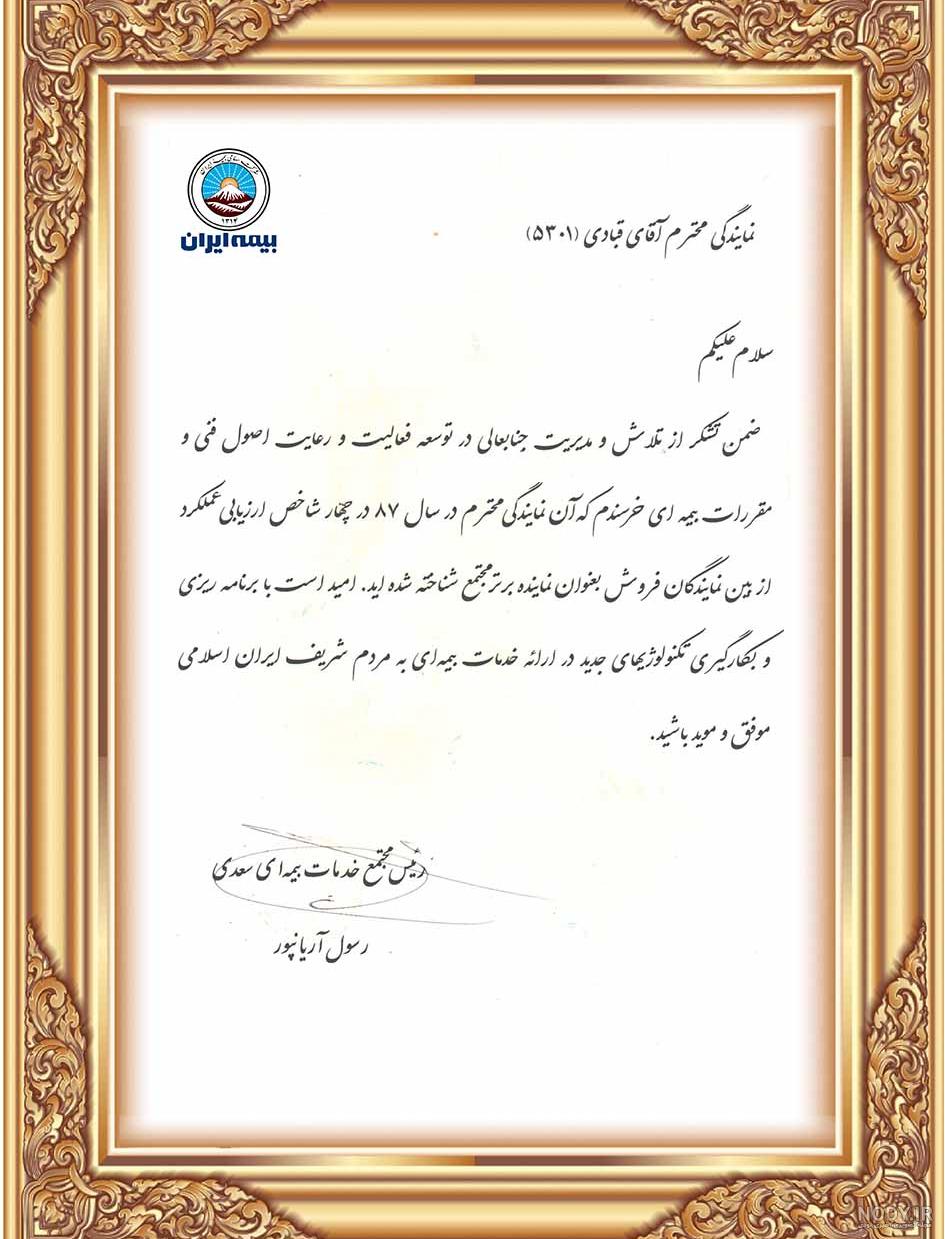 شرکت سهامی بیمه ایران
۱۳۱۴
بیمه ایران
نمایندگی محترم آقای قبادی (۵۳۰۱)
سلام علیکم
ضمن تشکر از تلاش و مدیریت جنابعالی در توسعه فعالیت و رعایت اصول فنی و
مقررات بیمه ای خرسندم که آن نمایندگی محترم در سال ۸۷ در چهار شاخص ارزیابی عملکرد
از بین نمایندگان فروش بعنوان نماینده برتر مجتمع شناخته شده اید. امید است با برنامه ریزی
و بکارگیری تکنولوژیهای جدید در ارائه خدمات بیمه‌ای به مردم شریف ایران اسلامی
موفق و موید باشید.
رئیس مجتمع خدمات بیمه‌ای سعدی
رسول آریانپور
NOOY.IR